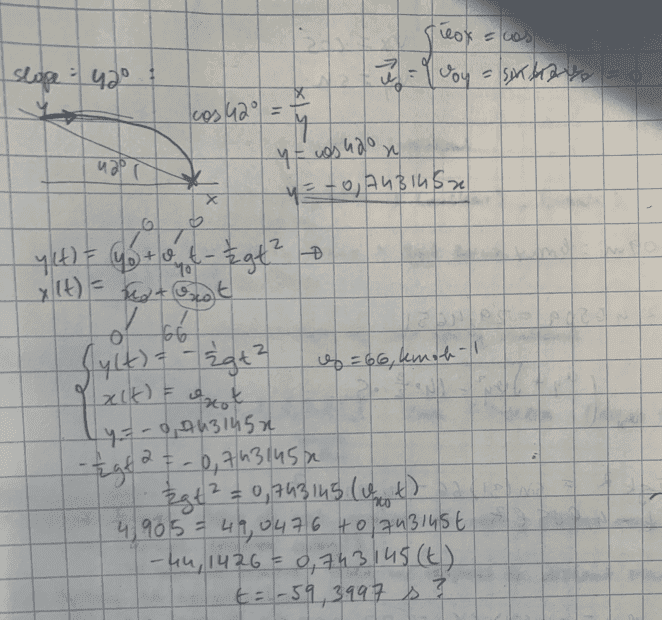 slope = 42° :
y
42°
x
v⃗₀ = { v₀x = cos
v₀y = = 0
cos42° = x/y
y = cos42° x
y = -0,743145x
0 0
y(t) = y₀ + v_y₀ t - ½gt² →
x(t) = x₀ + v_x₀ t
0 66
{ y(t) = -½gt² v₀ = 66, km·h⁻¹
x(t) = v_x₀ t
y = -0,743145x
-½gt² = -0,743145x
½gt² = 0,743145(v_x₀ t)
4,905 = 49,0476 + 0,743145t
-44,1426 = 0,743145(t)
t = -59,3997 s ?